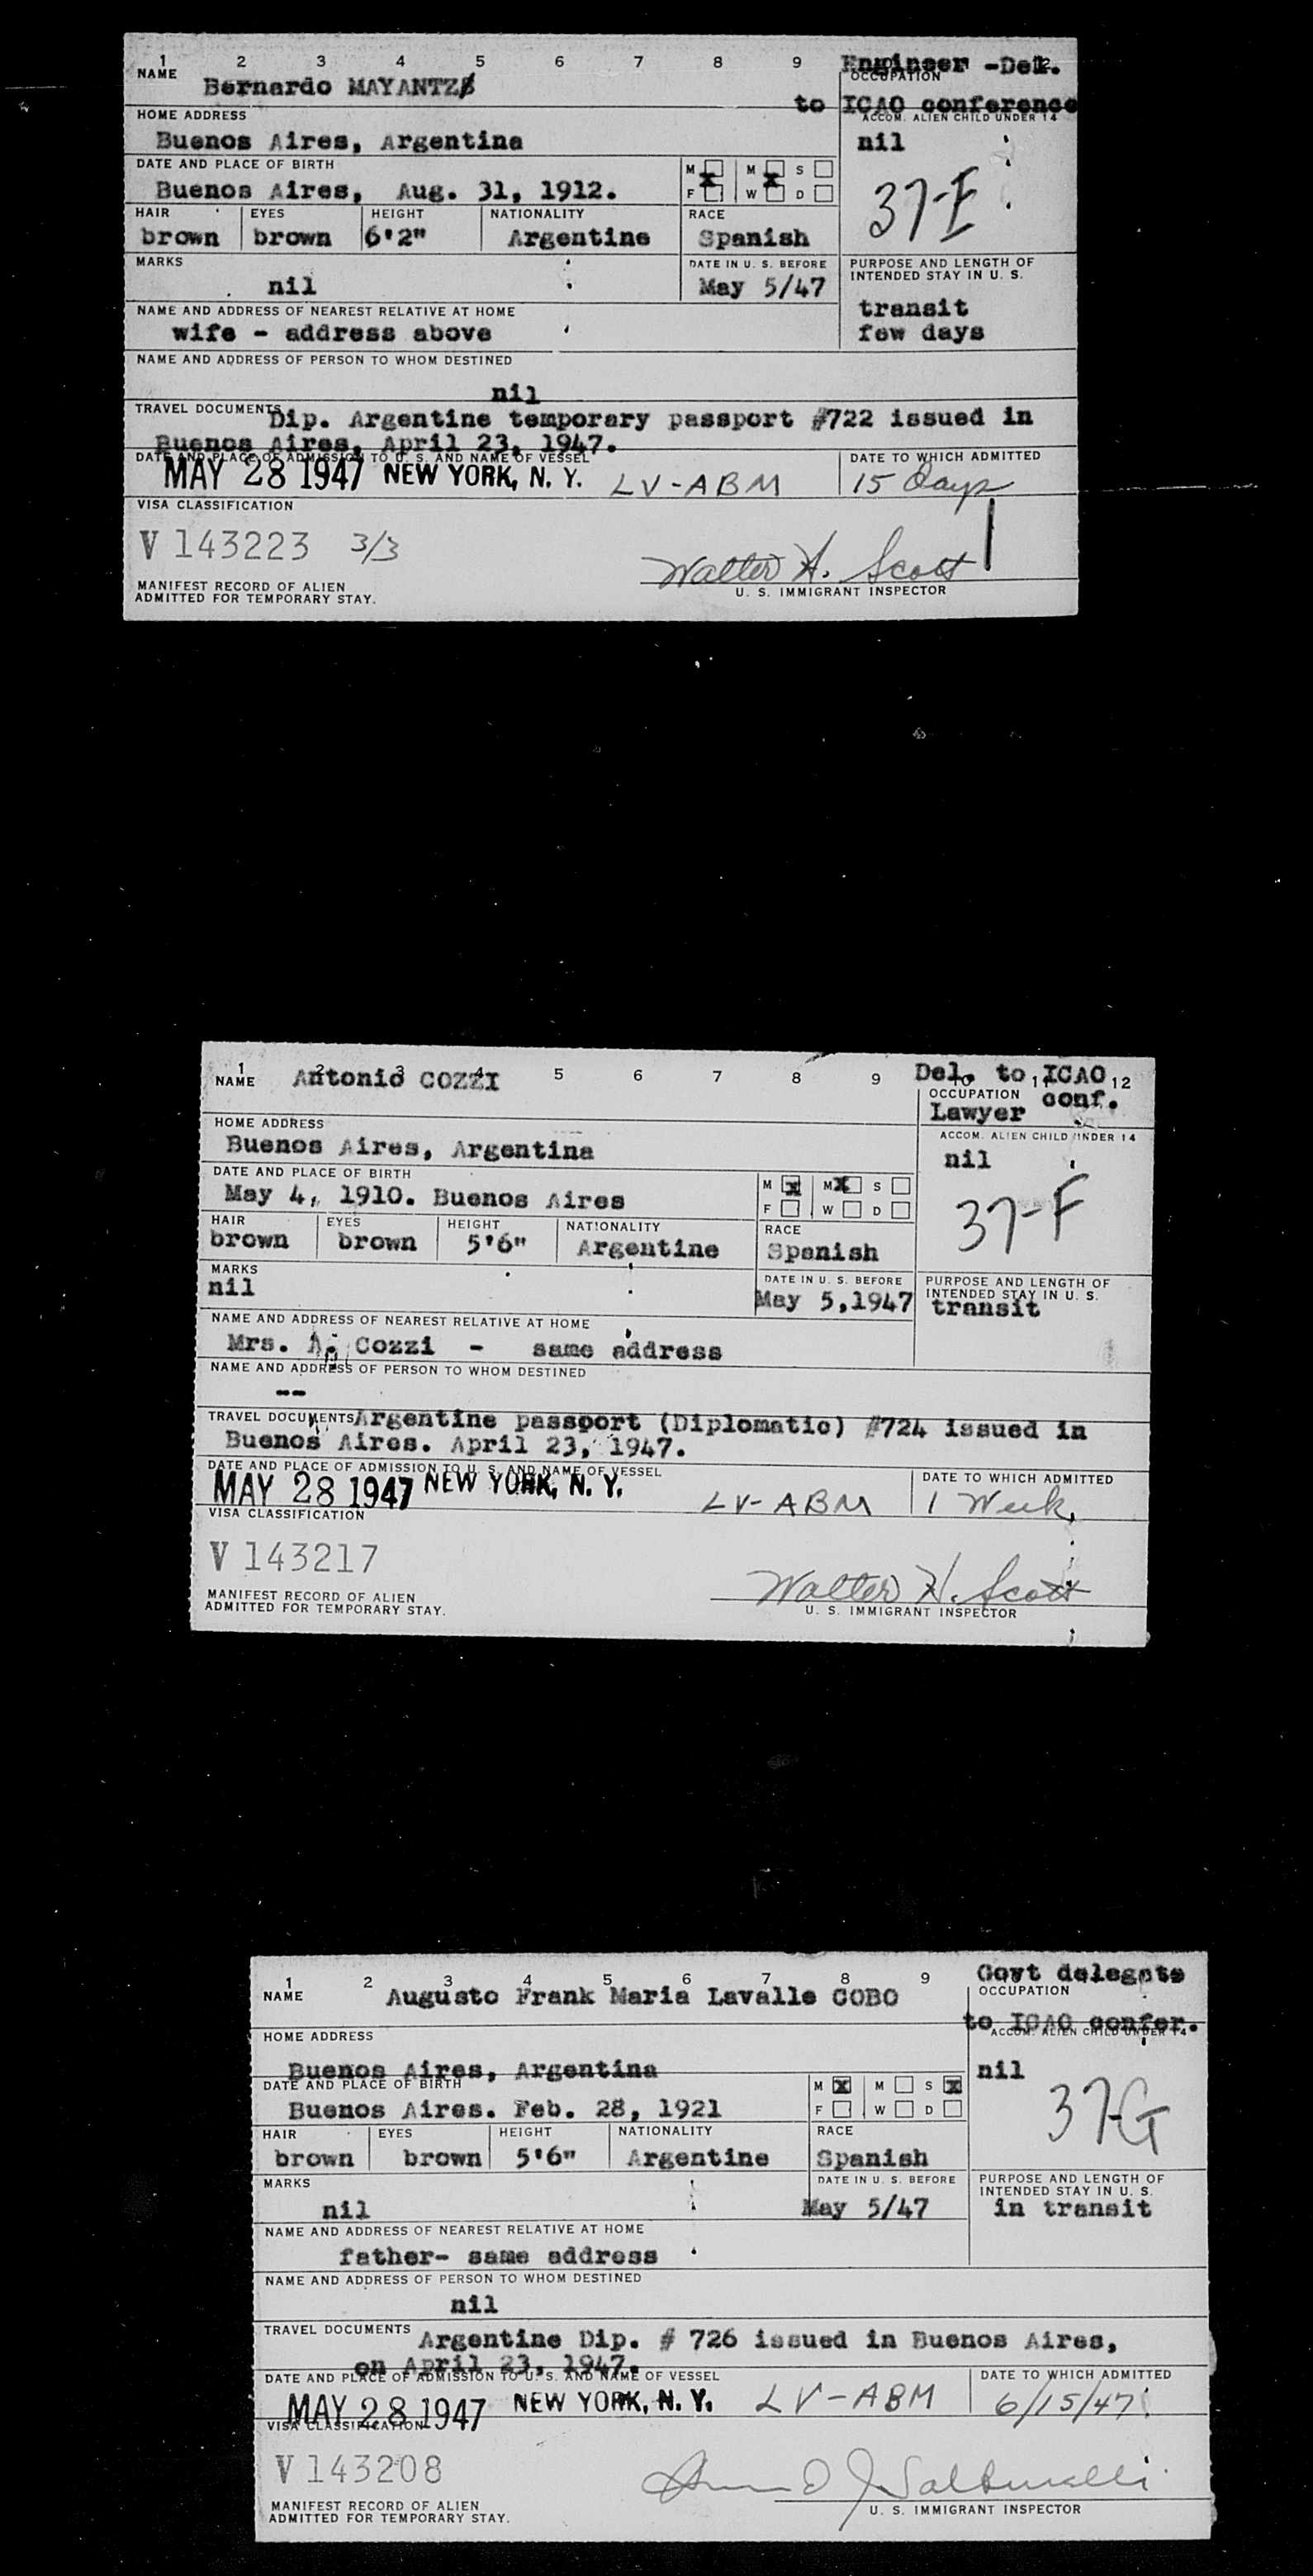 1 2 3 4 5 6 7 8 9 Engineer -Del. 12
NAME Bernardo MAYANTZ OCCUPATION
to ICAO conference
HOME ADDRESS ACCOM. ALIEN CHILD UNDER 14
Buenos Aires, Argentina nil
DATE AND PLACE OF BIRTH M M S
Buenos Aires, Aug. 31, 1912. F W D 37-E
HAIR EYES HEIGHT NATIONALITY RACE
brown brown 6'2" Argentine Spanish
MARKS DATE IN U. S. BEFORE PURPOSE AND LENGTH OF
INTENDED STAY IN U. S.
nil May 5/47 transit
NAME AND ADDRESS OF NEAREST RELATIVE AT HOME
wife - address above few days
NAME AND ADDRESS OF PERSON TO WHOM DESTINED
nil
TRAVEL DOCUMENTS Dip. Argentine temporary passport #722 issued in
Buenos Aires, April 23, 1947.
DATE AND PLACE OF ADMISSION TO U. S. AND NAME OF VESSEL DATE TO WHICH ADMITTED
MAY 28 1947 NEW YORK, N. Y. LV-ABM 15 Days
VISA CLASSIFICATION
V 143223 3/3 Walter H. Scott
MANIFEST RECORD OF ALIEN U. S. IMMIGRANT INSPECTOR
ADMITTED FOR TEMPORARY STAY.
1 2 3 4 5 6 7 8 9 Del. to ICAO 12
NAME Antonio COZZI OCCUPATION conf.
Lawyer
HOME ADDRESS ACCOM. ALIEN CHILD UNDER 14
Buenos Aires, Argentina nil
DATE AND PLACE OF BIRTH M x M X S
May 4, 1910. Buenos Aires F W D 37-F
HAIR EYES HEIGHT NATIONALITY RACE
brown brown 5'6" Argentine Spanish
MARKS DATE IN U. S. BEFORE PURPOSE AND LENGTH OF
INTENDED STAY IN U. S.
nil May 5,1947 transit
NAME AND ADDRESS OF NEAREST RELATIVE AT HOME
Mrs. A. Cozzi - same address
NAME AND ADDRESS OF PERSON TO WHOM DESTINED
--
TRAVEL DOCUMENTS Argentine passport (Diplomatic) #724 issued in
Buenos Aires. April 23, 1947.
DATE AND PLACE OF ADMISSION TO U. S. AND NAME OF VESSEL DATE TO WHICH ADMITTED
MAY 28 1947 NEW YORK, N. Y. LV-ABM 1 Week
VISA CLASSIFICATION
V 143217 Walter H. Scott
MANIFEST RECORD OF ALIEN U. S. IMMIGRANT INSPECTOR
ADMITTED FOR TEMPORARY STAY.
1 2 3 4 5 6 7 8 9 Govt delegate
NAME Augusto Frank Maria Lavalle COBO OCCUPATION
to ICAO confer.
HOME ADDRESS ACCOM. ALIEN CHILD UNDER 14
Buenos Aires, Argentina nil
DATE AND PLACE OF BIRTH M x M S x
Buenos Aires. Feb. 28, 1921 F W D 37-G
HAIR EYES HEIGHT NATIONALITY RACE
brown brown 5'6" Argentine Spanish
MARKS DATE IN U. S. BEFORE PURPOSE AND LENGTH OF
INTENDED STAY IN U. S.
nil May 5/47 in transit
NAME AND ADDRESS OF NEAREST RELATIVE AT HOME
father- same address
NAME AND ADDRESS OF PERSON TO WHOM DESTINED
nil
TRAVEL DOCUMENTS Argentine Dip. # 726 issued in Buenos Aires,
on April 23, 1947.
DATE AND PLACE OF ADMISSION TO U. S. AND NAME OF VESSEL DATE TO WHICH ADMITTED
MAY 28 1947 NEW YORK, N. Y. LV-ABM 6/15/47
VISA CLASSIFICATION
V 143208
MANIFEST RECORD OF ALIEN U. S. IMMIGRANT INSPECTOR
ADMITTED FOR TEMPORARY STAY.